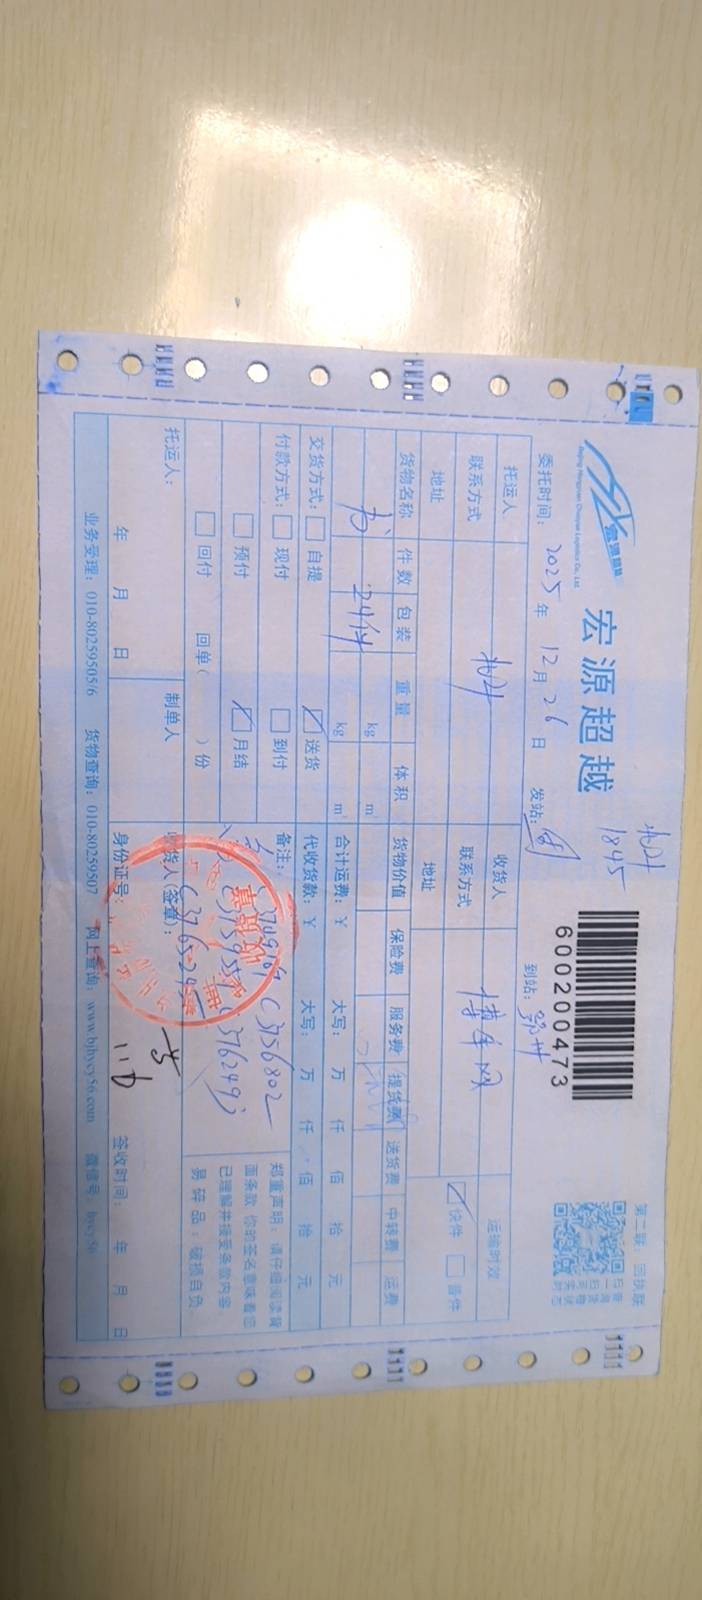 宏源超越
Beijing Hongyuan Chaoyue Logistics Co., Ltd.
1845
600200473
第二联：回执联
委托时间： 2025 年 12 月 26 日 发站： 到站：
托运人 收货人 运输时效
联系方式 联系方式 快件 普件
地址 地址
货物名称 件数 包装 重量 体积 货物价值 保险费 服务费 提货费 送货费 中转费 运费
书 24件 kg m³
kg m³
交货方式： 自提 送货 合计运费：¥ 大写： 万 仟 佰 拾 元
付款方式： 现付 到付 代收货款：¥ 大写： 万 仟 佰 拾 元
预付 月结 备注： C3756802
回付 回单（ ）份
郑重声明：请仔细阅读背
面条款 你的签名意味着您
已理解并接受条款内容
易碎品：破损自负
托运人： 制单人 收货人（签章）：
年 月 日 身份证号： 签收时间： 年 月 日
业务受理：010-80259505/6 货物查询：010-80259507 网上查询：www.bjhycy56.com 微信号：hycy56